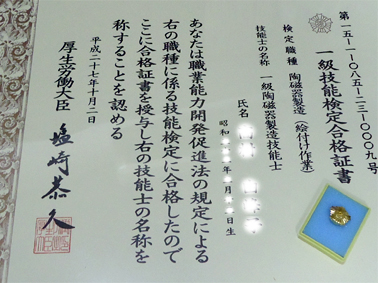 第一五-一-〇八五-二三-〇〇〇九号
一級技能検定合格証書
検定職種 陶磁器製造(絵付け作業)
技能士の名称 一級陶磁器製造技能士
氏名
昭和 年 月 日生
あなたは職業能力開発促進法の規定による
右の職種に係る技能検定に合格したので
ここに合格証書を授与し右の技能士の名称を
称することを認める
平成二十七年十月二日
厚生労働大臣 塩崎恭久